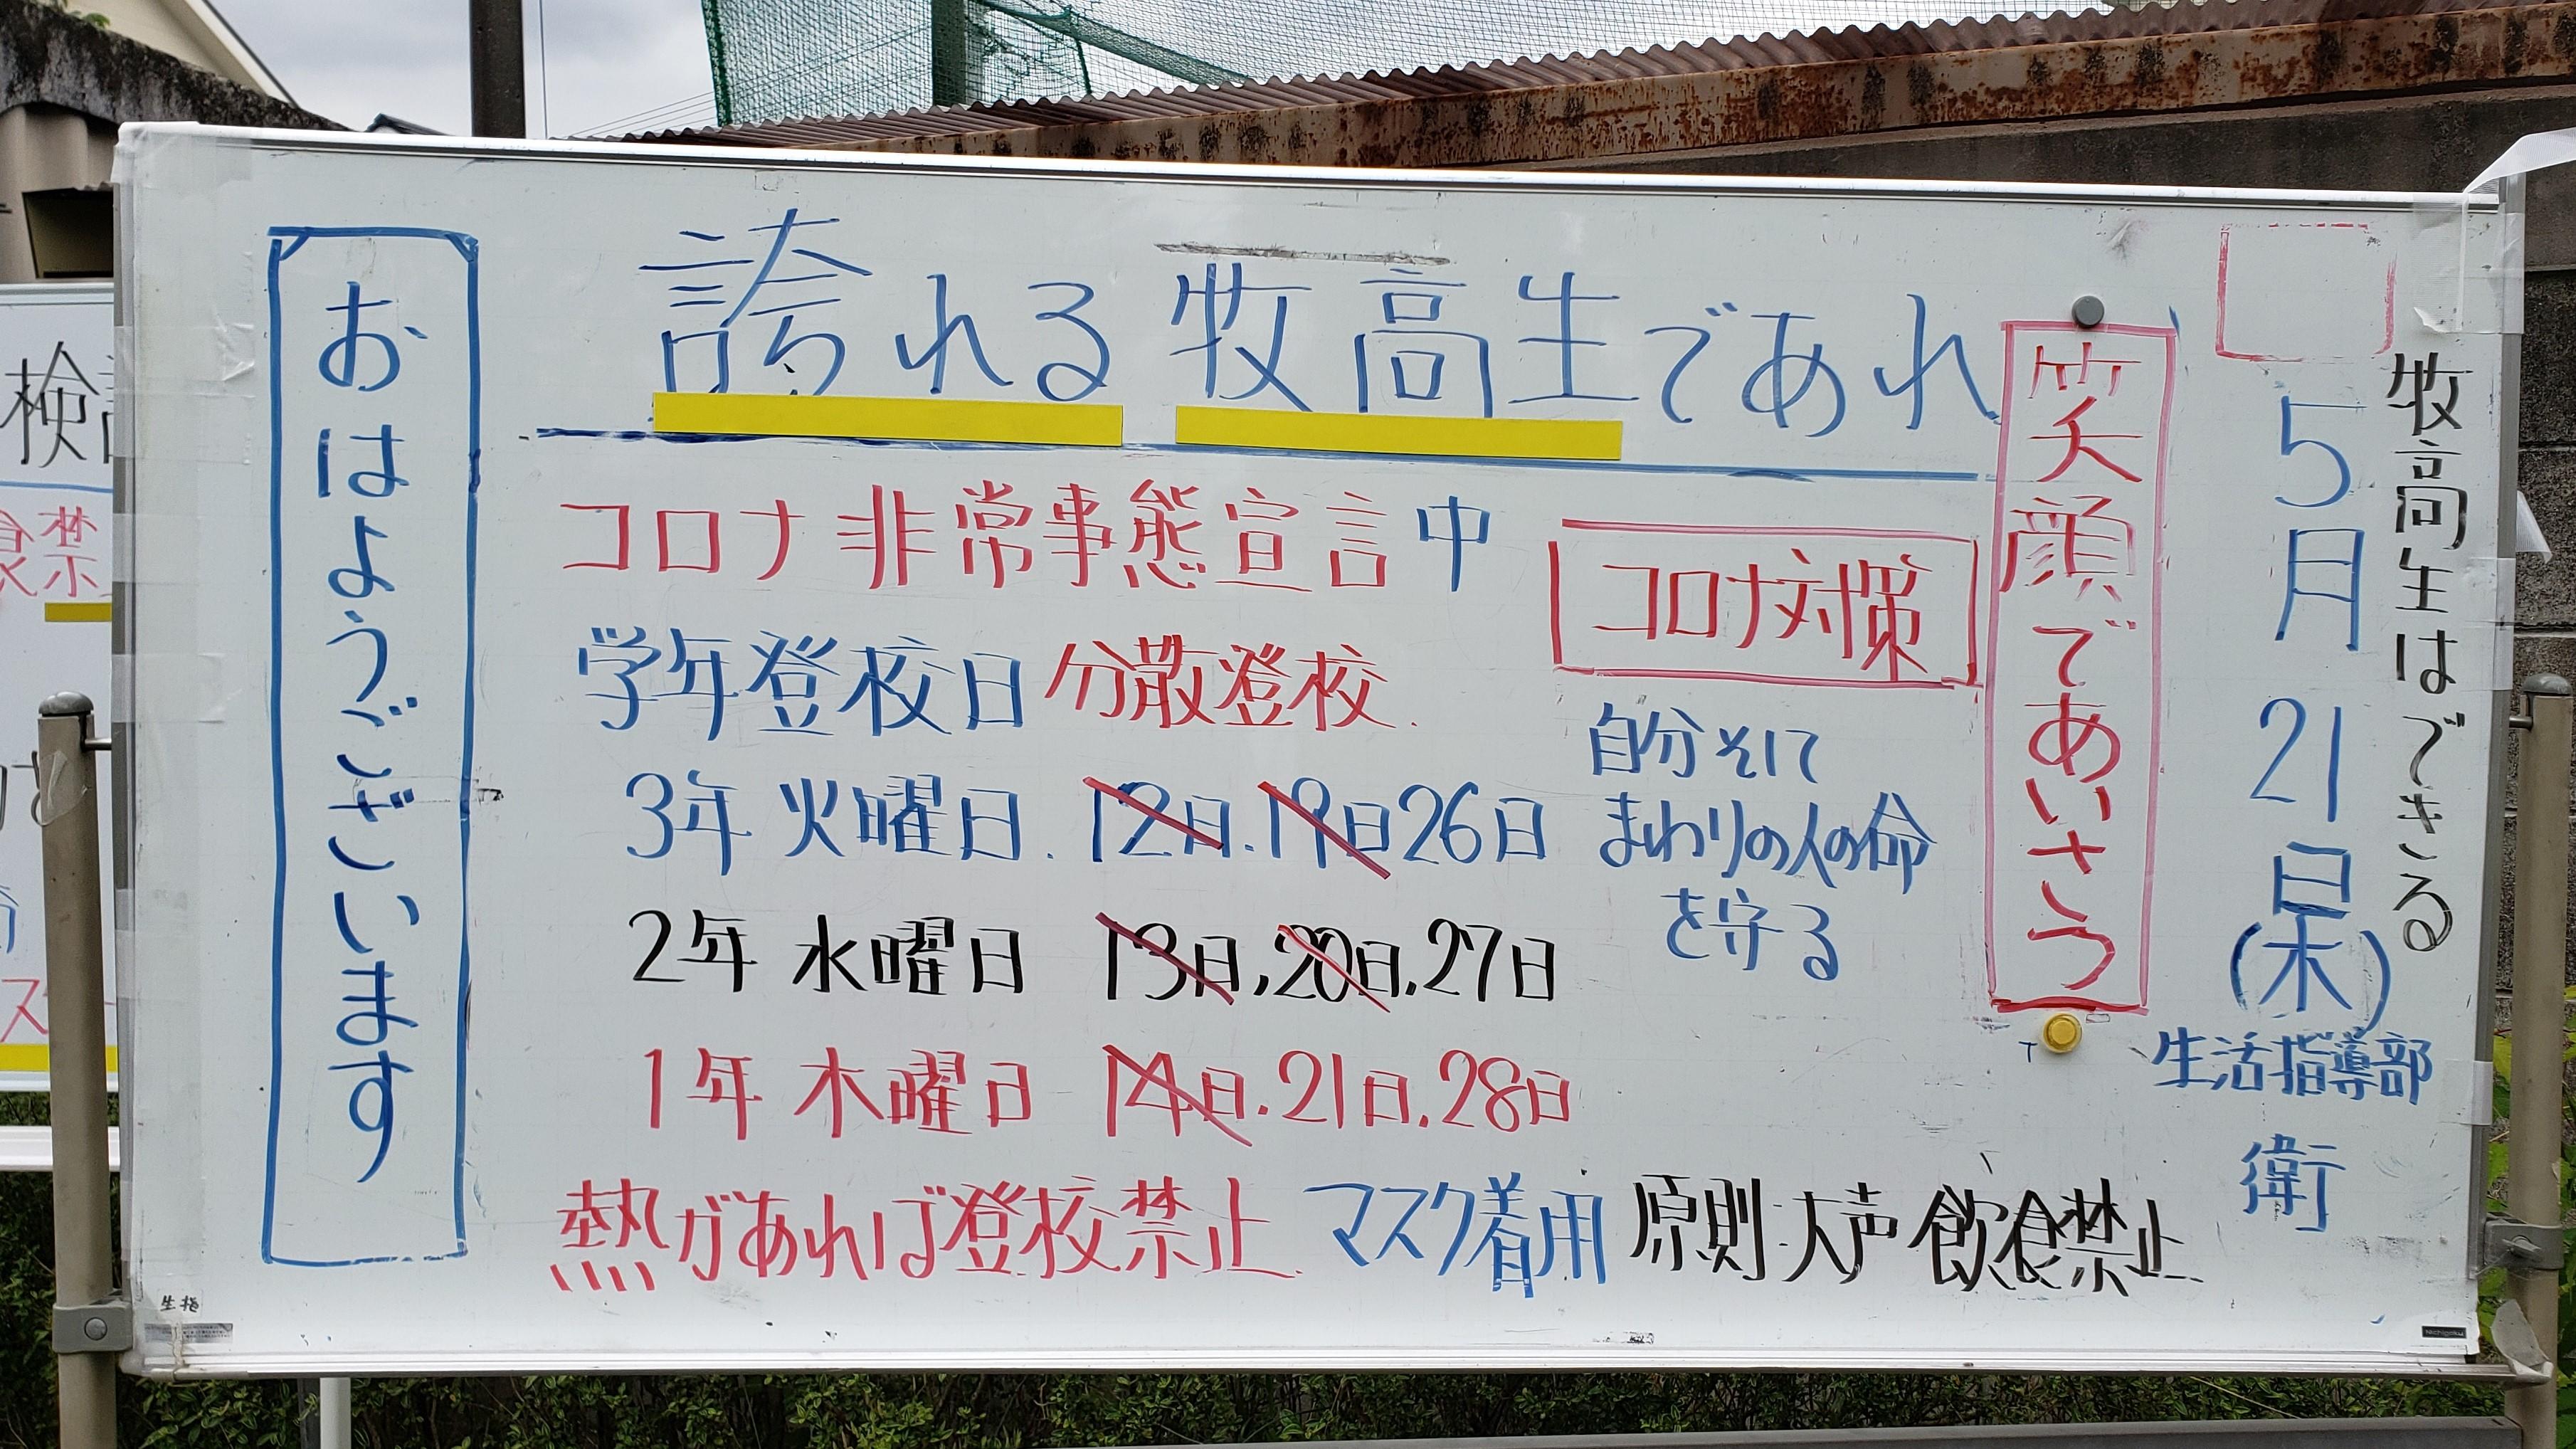 牧高生はできる
5月21日(木)
生活指導部
衛
笑顔であいさつ
誇れる牧高生であれ
コロナ非常事態宣言中
学年登校日 分散登校.
3年 火曜日. 12日.19日26日
2年 水曜日 13日,20日,27日
1年 木曜日 14日.21日.28日
コロナ対策
自分そして
まわりの人の命
を守る
熱があれば登校禁止. マスク着用 原則:大声 飲食禁止.
おはようございます
生指
Nichigaku
検
食禁